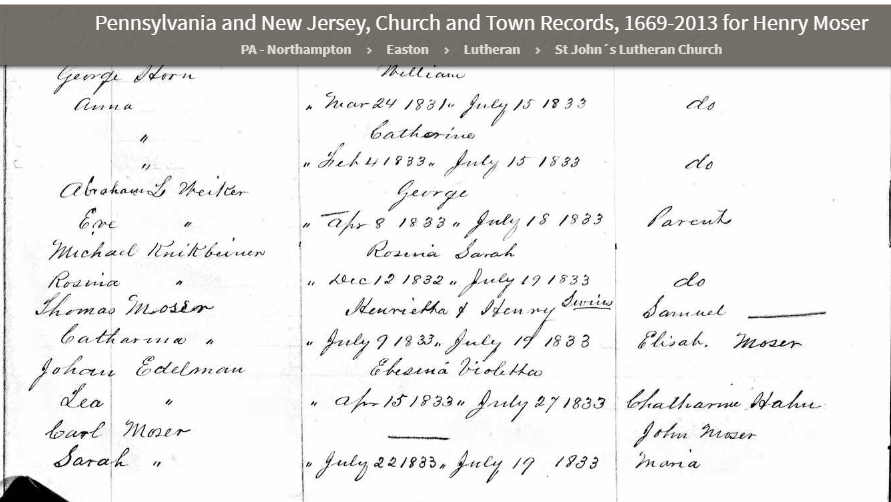 Pennsylvania and New Jersey, Church and Town Records, 1669-2013 for Henry Moser
PA - Northampton › Easton › Lutheran › St John´s Lutheran Church
George Horn William
Anna " Mar 24 1831 " July 15 1833 do
" Catherine
" " Feb 4 1833 " July 15 1833 do
Abraham L Weiker George
Eve " " Apr 8 1833 " July 18 1833 Parents
Michael Knikbeiner Rosina Sarah
Rosina " " Dec 12 1832 " July 19 1833 do
Thomas Moser Henrietta & Henry Twins Samuel ——
Catharina " " July 9 1833 " July 19 1833 Elisab. Moser
Johan Edelman Ebesina Violetta
Lea " " Apr 15 1833 " July 27 1833 Chatharine Hahn
Carl Moser —— John Moser
Sarah " " July 22 1833 " July 19 1833 Maria